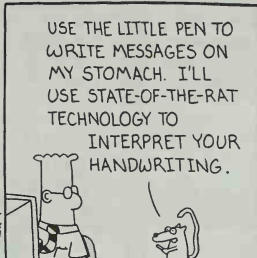 USE THE LITTLE PEN TO
WRITE MESSAGES ON
MY STOMACH. I'LL
USE STATE-OF-THE-RAT
TECHNOLOGY TO
INTERPRET YOUR
HANDWRITING.